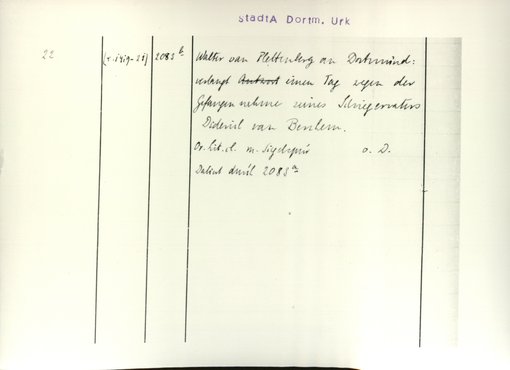 StadtA Dortm. Urk
22 (v. 1419-26) 2083 b Walter van Plettenberg an Dortmund:
verlangt Antwort einen Tag wegen der
Gefangennahme seines Schwiegervaters
Diderich van
Or. Lit. cl. m. Siegelspur o. D.
Datiert durch 2083 a